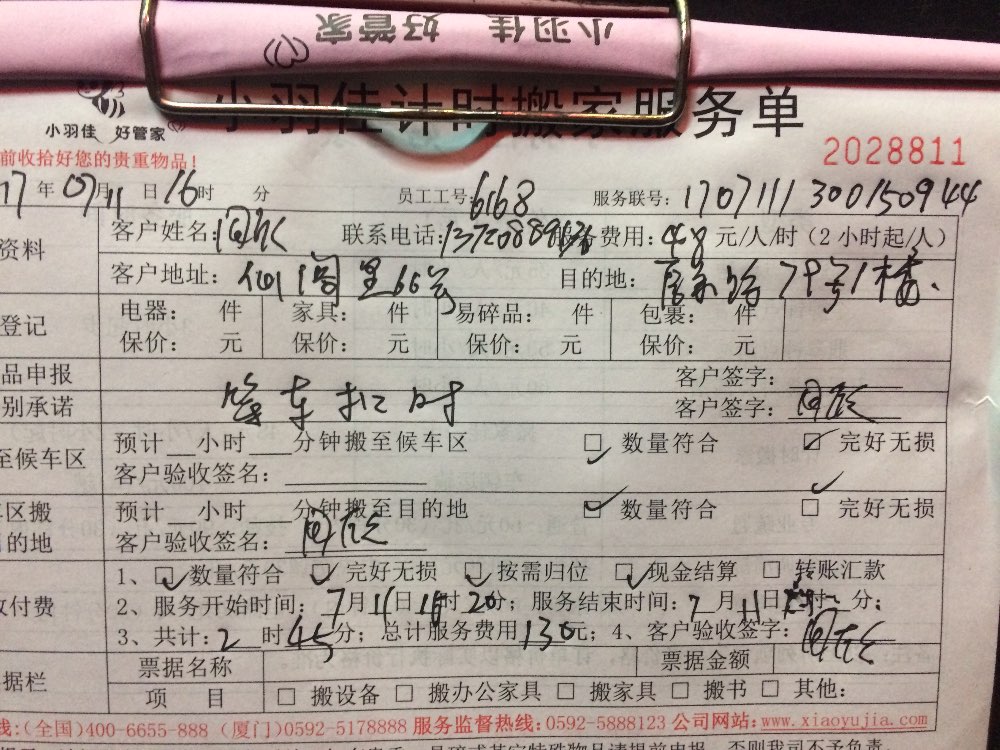 小羽佳 好管家
小羽佳计时搬家服务单
小羽佳 好管家
前收拾好您的贵重物品!
2028811
17年07月11日16时 分 员工工号:6168 服务联号:1707111300150944
资料 客户姓名: 联系电话: 服务费用:48元/人/时(2小时起/人)
客户地址: 里66号 目的地: 79号1楼.
登记 电器: 件 家具: 件 易碎品: 件 包裹: 件
保价: 元 保价: 元 保价: 元 保价: 元
品申报 客户签字:
别承诺 等车扣时 客户签字:
至候车区 预计 小时 分钟搬至候车区 □ 数量符合 □ 完好无损
客户验收签名:
车区搬 预计 小时 分钟搬至目的地 □ 数量符合 □ 完好无损
目的地 客户验收签名:
付费 1、□ 数量符合 □ 完好无损 □ 按需归位 □ 现金结算 □ 转账汇款
2、服务开始时间:7月11日 时20分;服务结束时间:7月11日 时 分;
3、共计:2时45分;总计服务费用130元;4、客户验收签字:
据栏 票据名称 票据金额
项 目 □ 搬设备 □ 搬办公家具 □ 搬家具 □ 搬书 □ 其他:
线:(全国)400-6655-888 (厦门)0592-5178888 服务监督热线:0592-5888123 公司网站:www.xiaoyujia.com